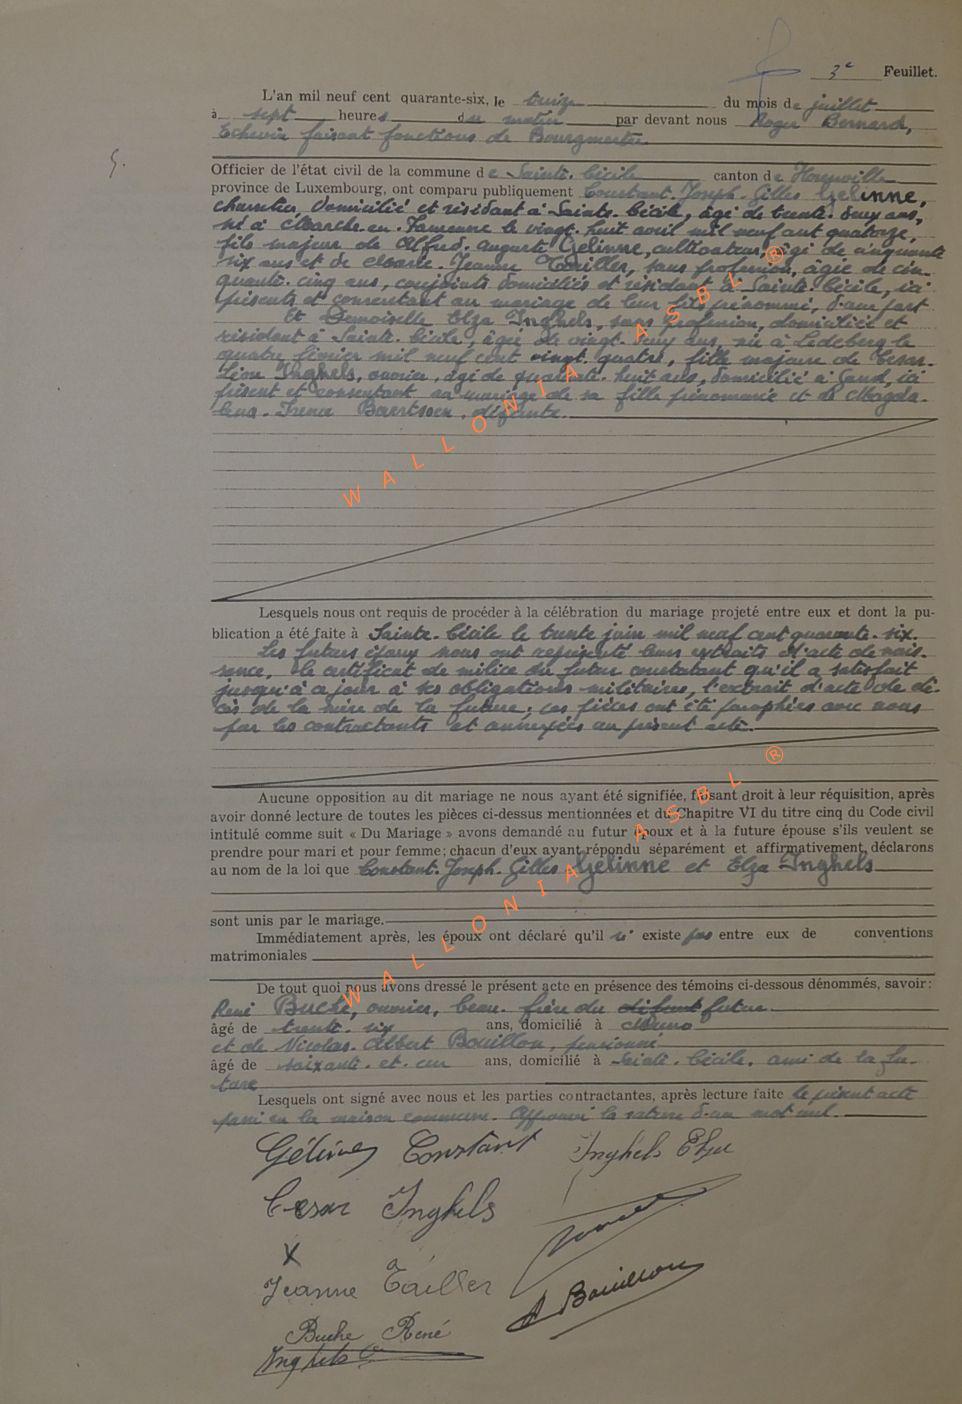 3e Feuillet.
L'an mil neuf cent quarante-six, le treize du mois de juillet
à sept heures du matin par devant nous Roger Bernard,
Echevin faisant fonctions de Bourgmestre
5.
Officier de l'état civil de la commune de Sainte-Cécile canton de Florenville
province de Luxembourg, ont comparu publiquement Constant-Joseph-Gilles Gélinne,
charretier, domicilié et résidant à Sainte-Cécile, âgé de trente-deux ans,
né à Marche-en-Famenne le vingt-huit avril mil neuf cent quatorze,
fils majeur de Alfred-Auguste Gélinne, cultivateur, âgé de cinquante
six ans et de Marie-Jeanne Tailler, sans profession, âgée de cin-
quante-cinq ans, conjoints domiciliés et résidant à Sainte-Cécile, ici
présents et consentant au mariage de leur fils prénommé, d'une part
Et Demoiselle Elza Inghels, sans profession, domiciliée et
résidant à Sainte-Cécile, âgée de vingt-deux ans, née à Ledeberg le
quatre février mil neuf cent vingt-quatre, fille majeure de César-
Léon Inghels, ouvrier, âgé de quarante-huit ans, domicilié à Gand, ici
présent et consentant au mariage de sa fille prénommée et de Magda-
lena-Irena Baertsoen, défunte.
WALLONIA ASBL ®
Lesquels nous ont requis de procéder à la célébration du mariage projeté entre eux et dont la pu-
blication a été faite à Sainte-Cécile le trente juin mil neuf cent quarante-six.
Les futurs époux nous ont représenté leurs extraits d'acte de nais-
sance, le certificat de milice du futur constatant qu'il a satisfait
jusqu'à ce jour à ses obligations militaires, l'extrait d'acte de dé-
cès de la mère de la future; ces pièces ont été paraphées avec nous
par les contractants et annexées au présent acte.
Aucune opposition au dit mariage ne nous ayant été signifiée, faisant droit à leur réquisition, après
avoir donné lecture de toutes les pièces ci-dessus mentionnées et du Chapitre VI du titre cinq du Code civil
intitulé comme suit « Du Mariage » avons demandé au futur époux et à la future épouse s'ils veulent se
prendre pour mari et pour femme; chacun d'eux ayant répondu séparément et affirmativement, déclarons
au nom de la loi que Constant-Joseph-Gilles Gélinne et Elza Inghels
sont unis par le mariage.
Immédiatement après, les époux ont déclaré qu'il n' existe pas entre eux de conventions
matrimoniales
WALLONIA ASBL ®
De tout quoi nous avons dressé le présent acte en présence des témoins ci-dessous dénommés, savoir:
René Buche, ouvrier, beau-frère du défunt futur
âgé de trente-six ans, domicilié à Muno
et de Nicolas-Albert Bouillon, pensionné
âgé de soixante-et-un ans, domicilié à Sainte-Cécile, ami de la fu-
ture
Lesquels ont signé avec nous et les parties contractantes, après lecture faite le présent acte
passé en la maison commune. Approuvé la rature d'un mot nul.
Gélinne Constant Inghels Elza
Cesar Inghels
X
Jeanne Tailler
A Bouillon
Buche René
Inghels